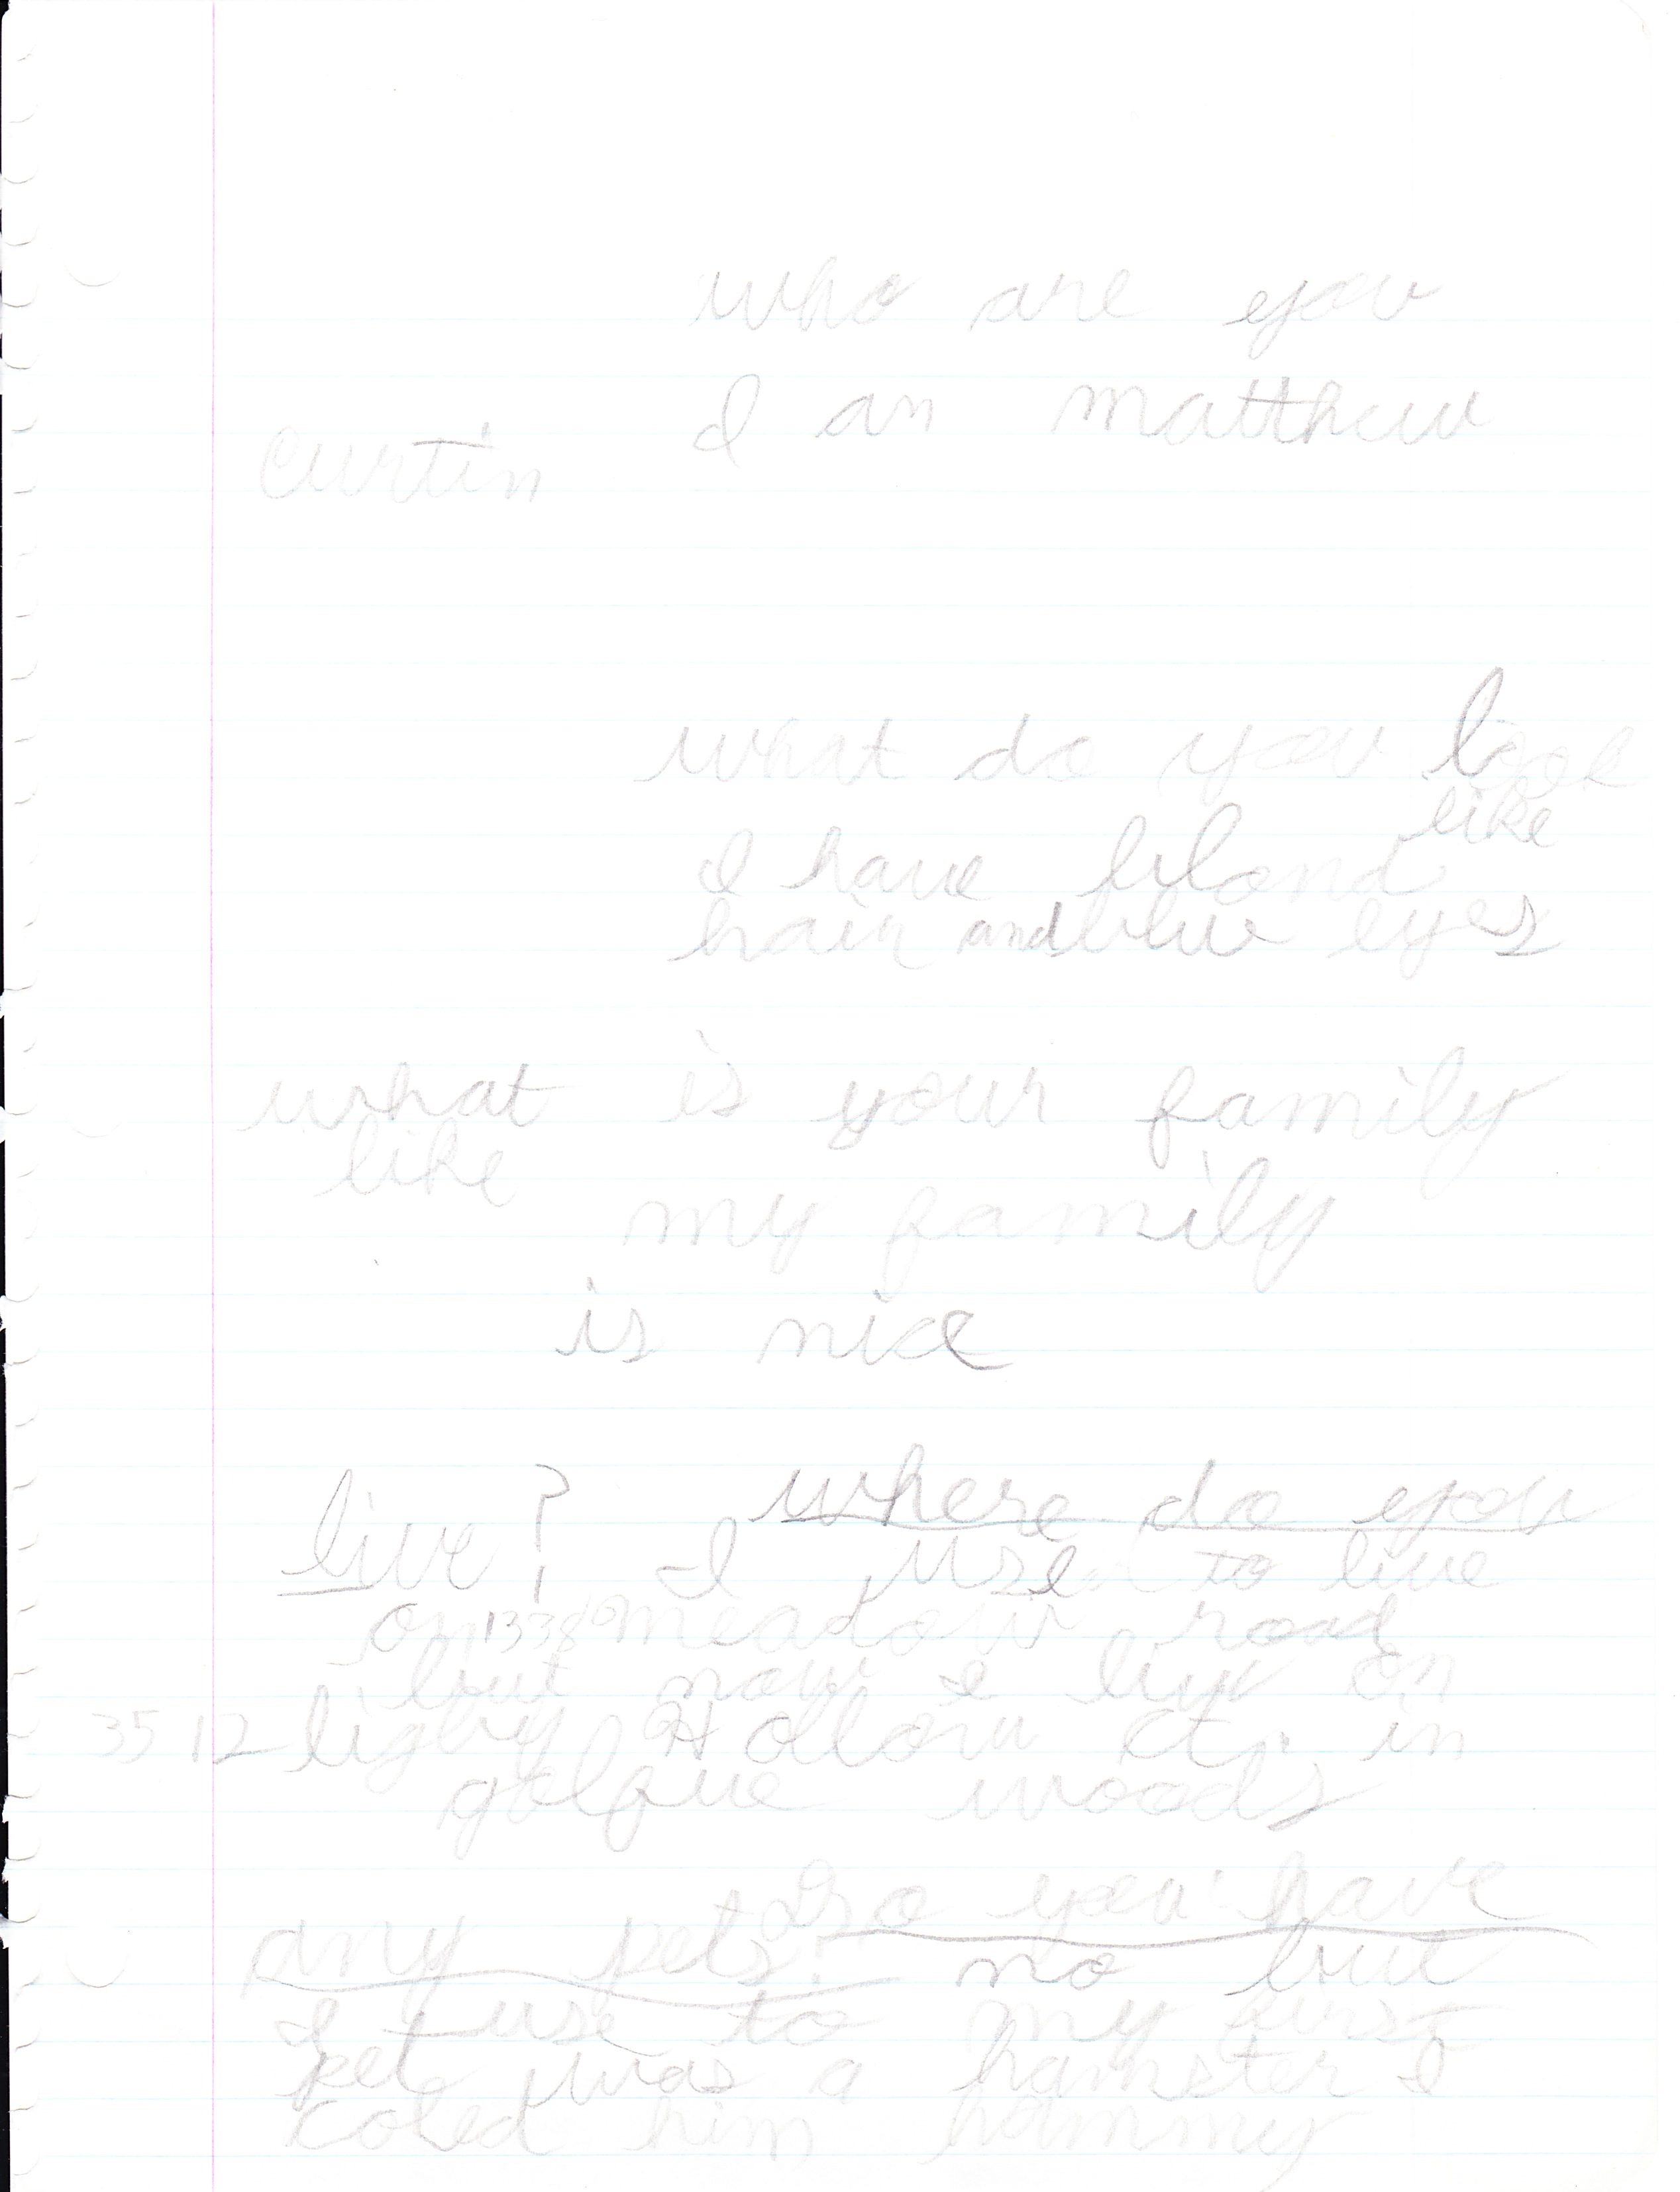 who are you
I am matthew
curtin
what do you look
like
I have blond
hair and blue eyes
what is your family
like
my family
is nice
where do you
live? I used to live
on 1338 meadow road
but now I live on
3512 ligby Hollow Ct. in
woods
Do you have
any pets? no but
I use to my first
pet was a hamster I
coled him hammy